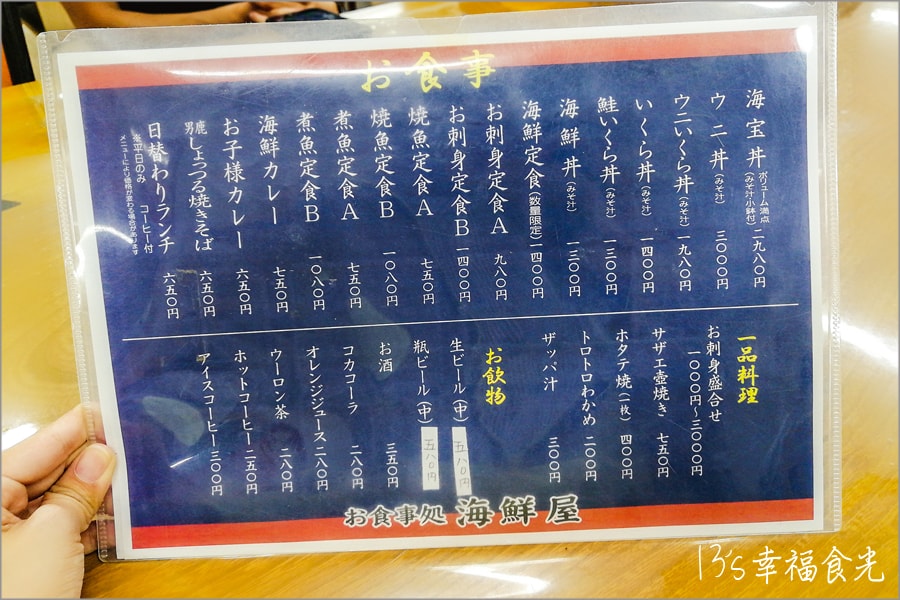 お食事
海宝丼 ボリューム満点（みそ汁小鉢付） 二九八〇円
ウニ丼（みそ汁） 三〇〇〇円
ウニいくら丼（みそ汁） 一九八〇円
いくら丼（みそ汁） 一四〇〇円
鮭いくら丼（みそ汁） 一三〇〇円
海鮮丼（みそ汁） 一三〇〇円
海鮮定食（数量限定） 一四〇〇円
お刺身定食A 九八〇円
お刺身定食B 一四〇〇円
焼魚定食A 七五〇円
焼魚定食B 一〇八〇円
煮魚定食A 七五〇円
煮魚定食B 一〇八〇円
海鮮カレー 七五〇円
お子様カレー 六五〇円
男鹿しょっつる焼きそば 六五〇円
日替わりランチ コーヒー付 六五〇円
※平日のみ
メニューにより価格が変わる場合があります
一品料理
お刺身盛合せ
一〇〇〇円〜三〇〇〇円
サザエ壺焼き 七五〇円
ホタテ焼（一枚） 四〇〇円
トロトロわかめ 二〇〇円
ザッパ汁 三〇〇円
お飲物
生ビール（中） 五八〇円
瓶ビール（中） 五八〇円
お酒 三五〇円
コカコーラ 二八〇円
オレンジジュース 二八〇円
ウーロン茶 二八〇円
ホットコーヒー 二五〇円
アイスコーヒー 三〇〇円
お食事処 海鮮屋
13's幸福食光